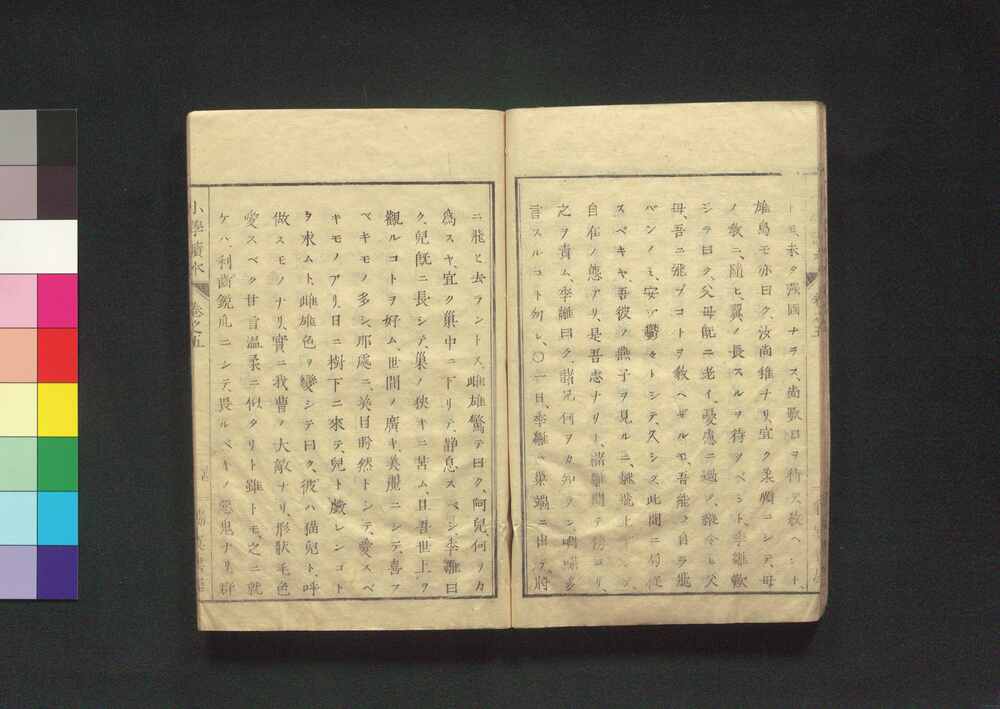 トモ、未タ強固ナラス、尚數日ヲ待テ教ヘント、
雄鳥モ亦曰ク、汝尚稚ナリ、宜ク柔順ニシテ、母
ノ教ニ随ヒ、翼ノ長スルヲ待ツベシト、季雛歎
シテ曰ク、父母既ニ老イ、憂慮ニ過ク、縱令ヒ父
母、吾ニ飛ブコトヲ教ヘザルモ、吾能ク自ラ飛
ベンノミ、安ゾ鬱々トシテ、久シク此間ニ
スベキヤ、吾彼ノ燕子ヲ見ルニ、
自在ノ態アリ、是吾志ナリト、諸雛聞テ
之ヲ責ム、季雛曰ク、諸兄何ヲカ知ラン、多
言スルコト勿レ、〇一日、季雛ハ巣端ニ出テ、將
ニ飛ヒ去ラントス、雌雄驚テ曰ク、阿兒、何ヲカ
爲スヤ、宜ク巣中ニ下リテ、静息スベシ、季雛曰
ク、兒既ニ長シテ、巣ノ狹キニ苦ム、且吾世上ヲ
觀ルコトヲ好ム、世間ノ廣キ、美麗ニシテ、喜フ
ベキモノ多シ、那處ニ、美目盼然トシテ、愛スベ
キモノアリ、日ニ樹下ニ來テ、兒ト戯レンコト
ヲ求ムト、雌雄色ヲ變シテ曰ク、彼ハ猫兒ト呼
做スモノナリ、實ニ我曹ノ大敵ナリ、形狀毛色
愛スベク、甘言温柔ニ似タリト雖トモ、之ニ就
ケハ、利齒鋭爪ニシテ、畏ルベキノ惡鬼ナリ、群
小學讀本 卷之五